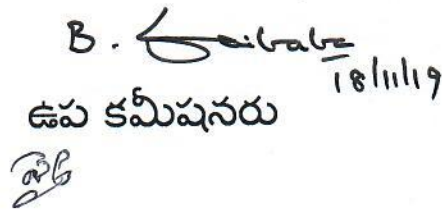 B. Saibaba
18/11/19
ఉప కమీషనరు